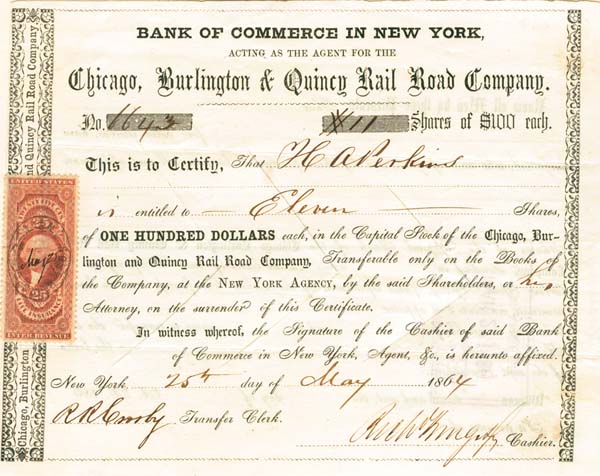 BANK OF COMMERCE IN NEW YORK,
ACTING AS THE AGENT FOR THE
Chicago, Burlington & Quincy Rail Road Company.
No. 1643 11 Shares of $100 each.
This is to Certify, That H A Perkins
is entitled to Eleven Shares,
of ONE HUNDRED DOLLARS each, in the Capital Stock of the Chicago, Bur-
lington and Quincy Rail Road Company, Transferable only on the Books of
the Company, at the NEW YORK AGENCY, by the said Shareholders, or his
Attorney, on the surrender of this Certificate.
In witness whereof, the Signature of the Cashier of said Bank
of Commerce in New York, Agent, &c., is hereunto affixed.
New York 25th day of May 1864
R R Crosby Transfer Clerk.
Cashier.
and Quincy Rail Road Company.
Chicago, Burlington
UNITED STATES
25 25
INTER. REVENUE